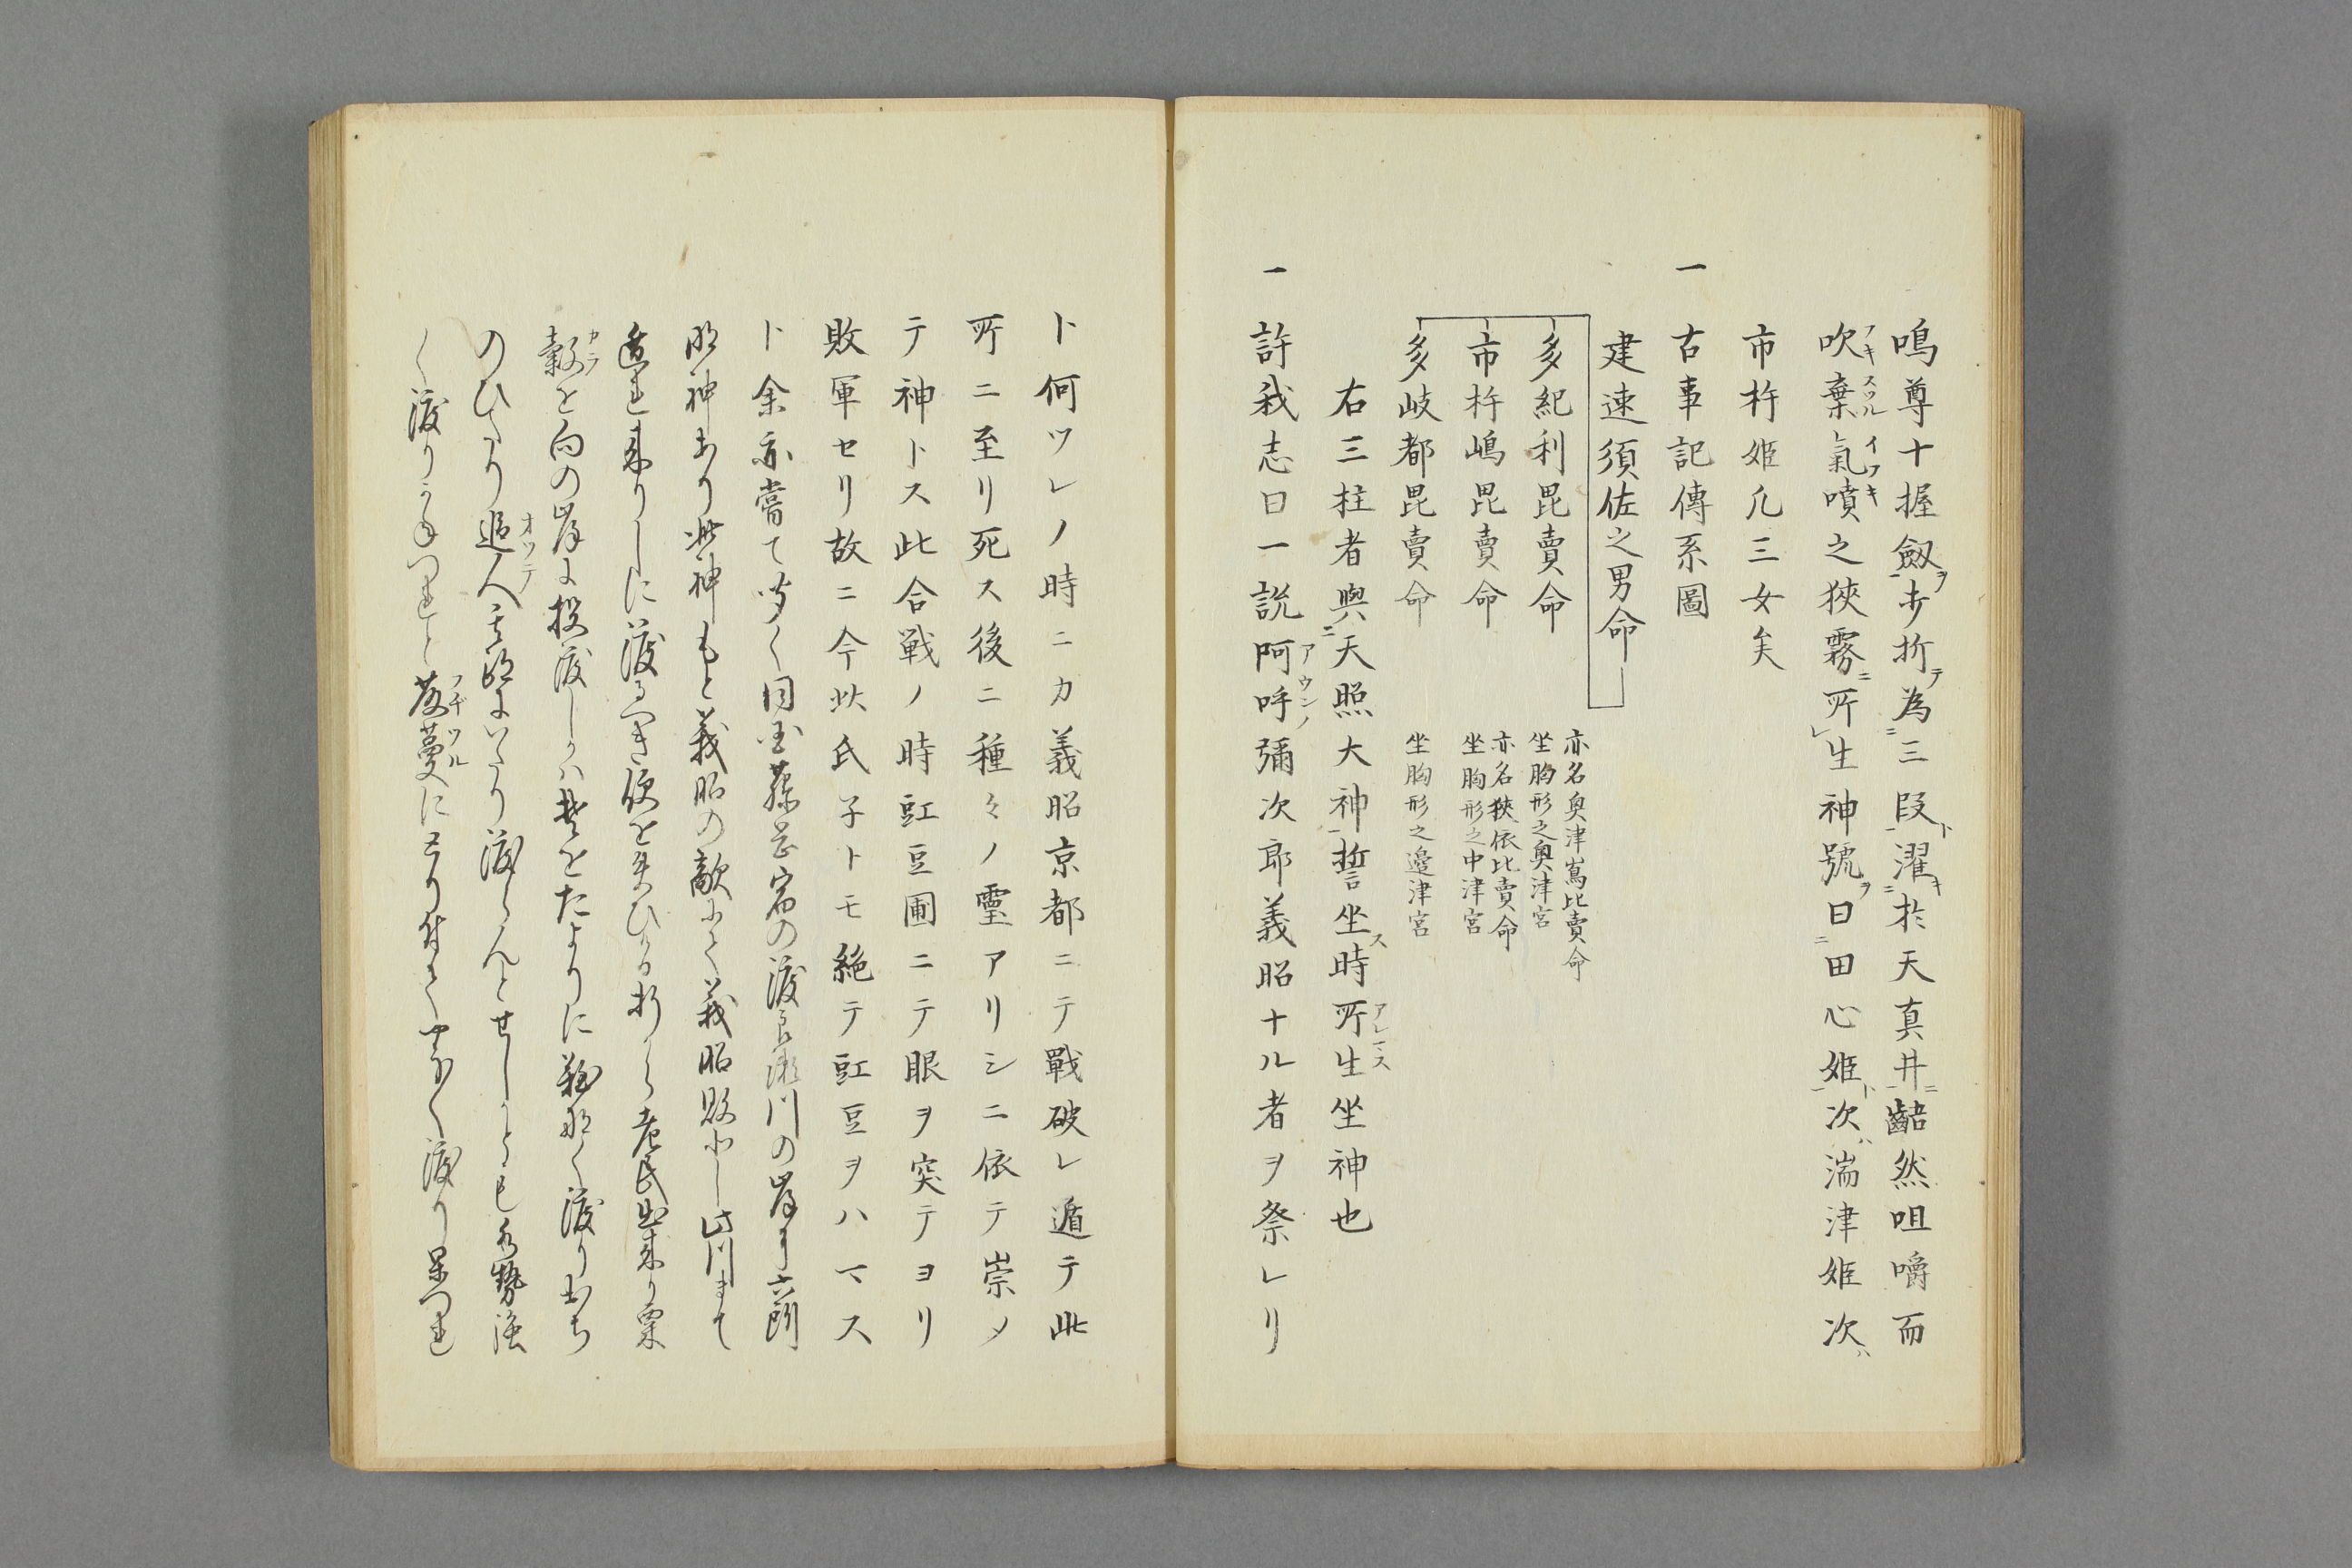 鳴尊十握劔ヲ歩折テ為三段ト濯キ於天真井ニ齧然咀嚼而
吹棄氣噴之狹霧ニ所生神號ヲ曰田心姫ト次ハ湍津姫次ハ
市杵姫凡三女矣
一 古事記傳系圖
建速須佐之男命
多紀利毘賣命 亦名奥津嶌比賣命 坐胸形之奥津宮
市杵嶋毘賣命 亦名狹依比賣命 坐胸形之中津宮
多岐都毘賣命 坐胸形之邉津宮
右三柱者與天照大神誓坐ス時所生坐神也
一 許我志曰一説阿呼彌次郎義昭ナル者ヲ祭レリ
ト何ツレノ時ニカ義昭京都ニテ戰破レ遁テ此
所ニ至リ死ス後ニ種々ノ靈アリシニ依テ崇メ
テ神トス此合戦ノ時豇豆圃ニテ眼ヲ突テヨリ
敗軍セリ故ニ今此氏子トモ絶テ豇豆ヲハマス
ト余亦嘗て聞く同国藤岡宿の渡良瀬川の岸に六所
明神あり此神もと義昭の敵にて義昭敗北し此川まて
迯れ来りしに渡るへき便を失ひける折から老民出来り粟
穀を向の岸に投渡しけれは夫をたよりに難なく渡り
のひたり追人も渡らんとせしかとも水勢強
く渡りかねつれと藤蔓にとり付てやうやく渡り